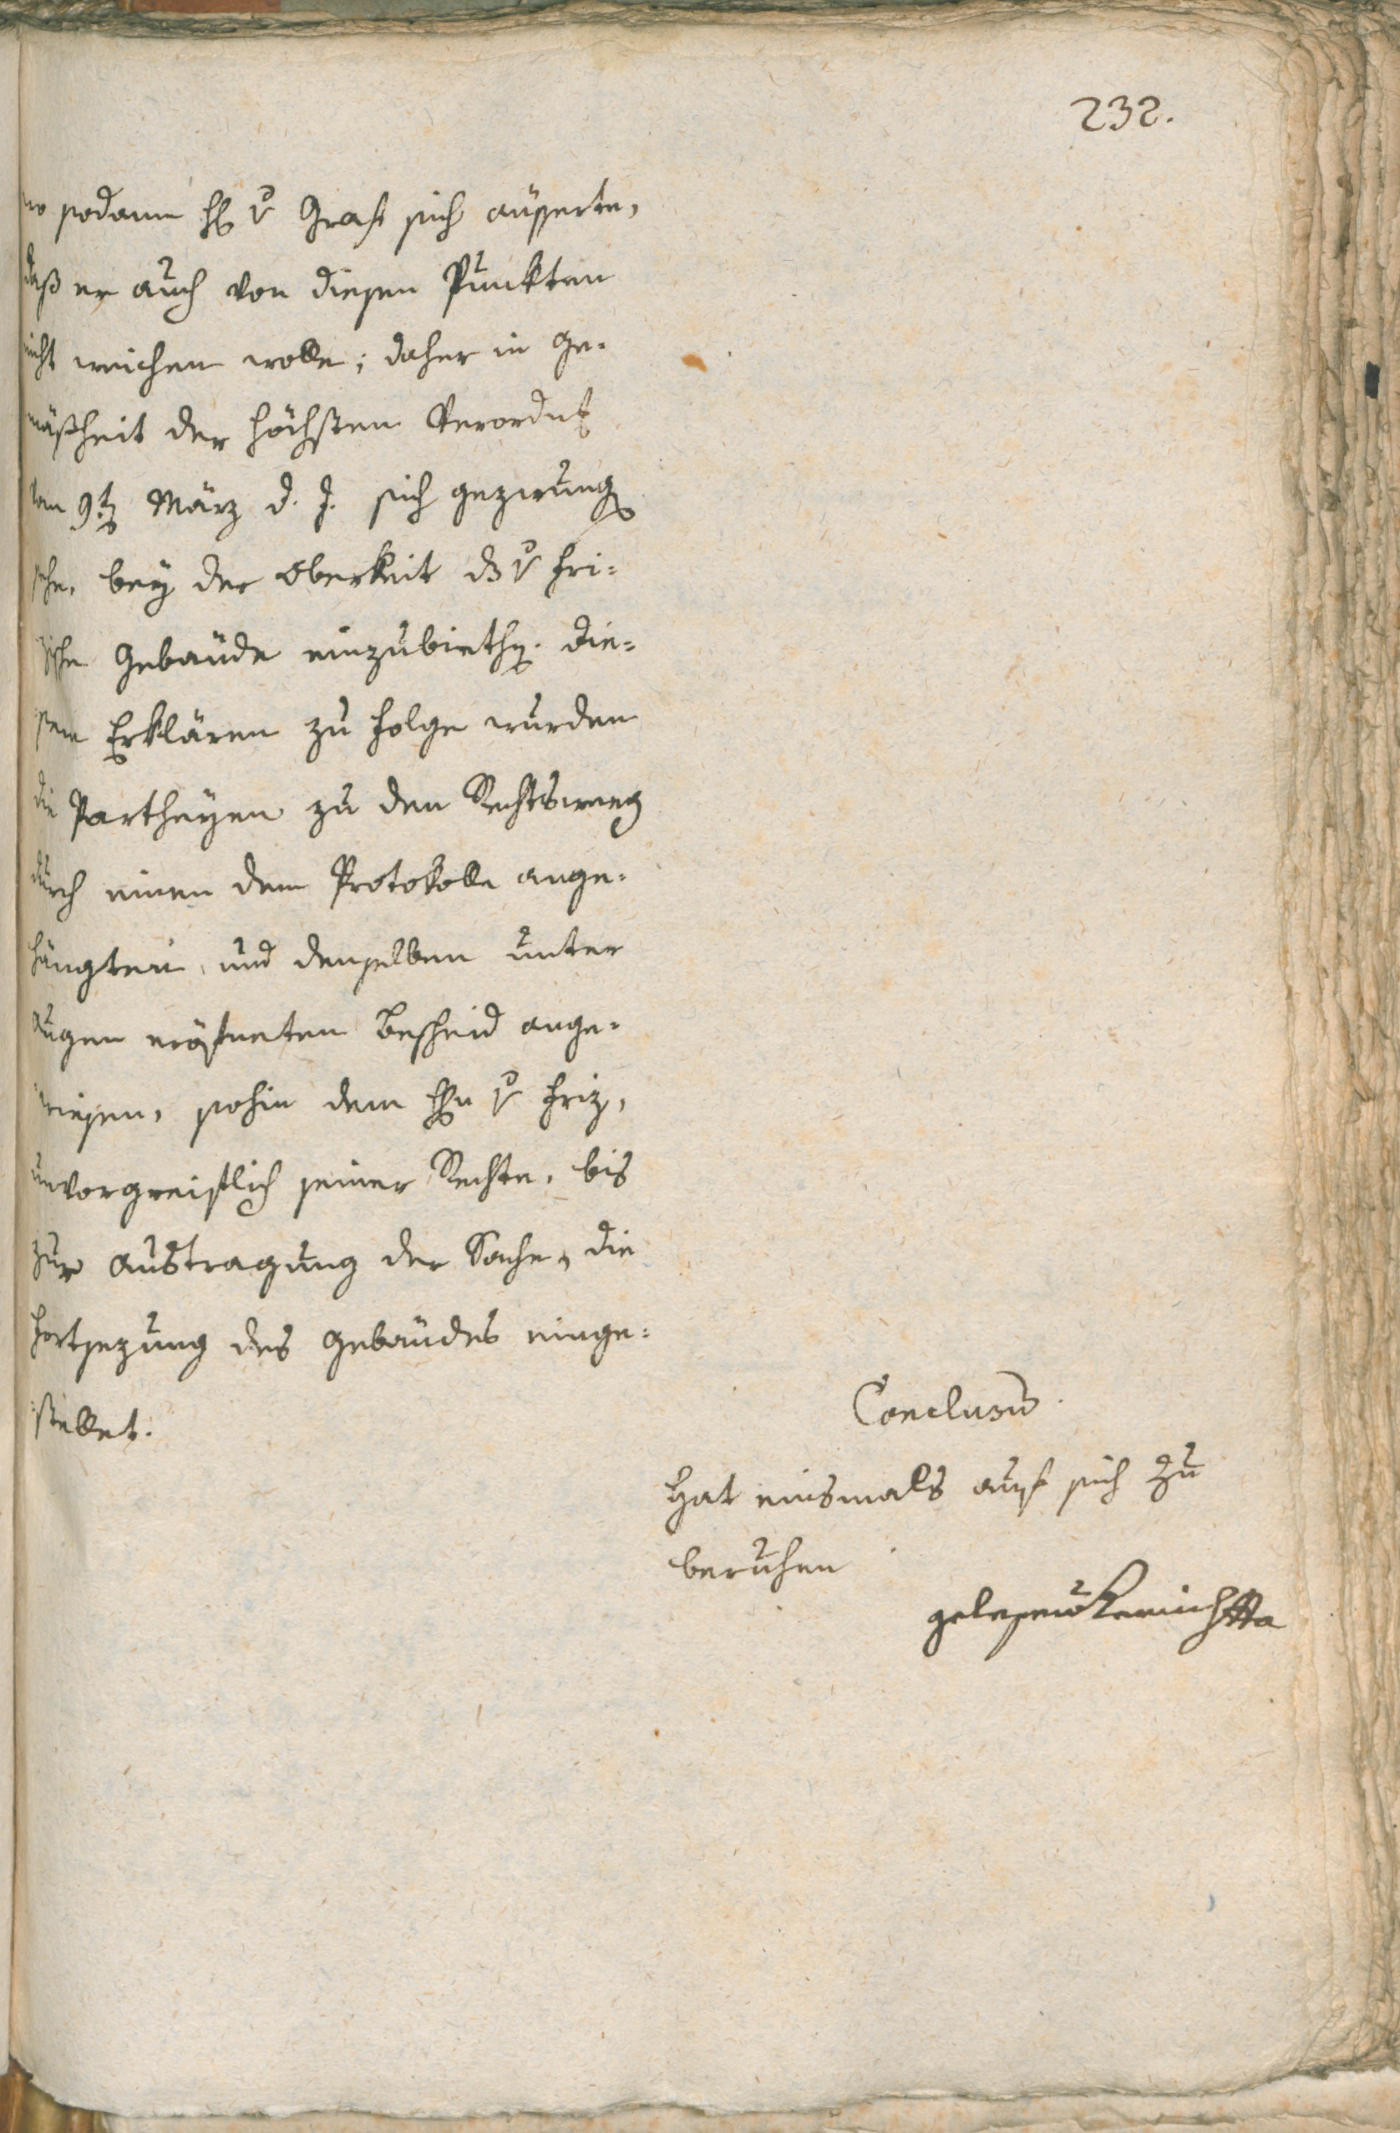 232.
wo sodann H v Graf sich äusserte,
daß er auch von diesen Punkten
nicht weichen wolle; daher in Ge-
mäßheit der höchsten Verordng
vom 9t März d. J. sich gezwung
sehe, bey der Obrkeit das v Fri-
zische Gebäude einzubieth. Die-
sem Erklären zu Folge wurden
die Partheyen zu den Rechtsweeg
durch einen dem Protokolle ange-
hängten, und denselben unter
Augen eröfneten Bescheid ange-
wiesen, sohin dem Hn v Friz,
unvorgreiflich seiner Rechte, bis
zur Austragung der Sache, die
Fortsezung des Gebäudes einge-
stellet.
Conclusum
Hat einsmals auf sich zu
beruhen
gelesen